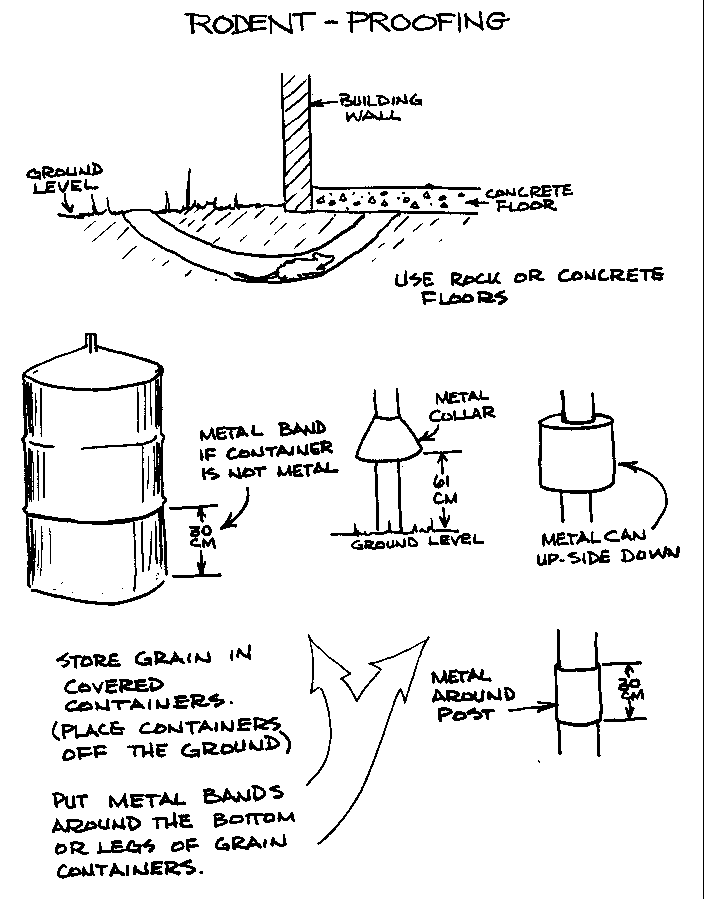 RODENT - PROOFING
BUILDING
WALL
GROUND
LEVEL
CONCRETE
FLOOR
USE ROCK OR CONCRETE
FLOORS
METAL BAND
IF CONTAINER
IS NOT METAL
30
CM
METAL
COLLAR
61
CM
GROUND LEVEL
METAL CAN
UP-SIDE DOWN
STORE GRAIN IN
COVERED
CONTAINERS.
(PLACE CONTAINERS
OFF THE GROUND)
METAL
AROUND
POST
30
CM
PUT METAL BANDS
AROUND THE BOTTOM
OR LEGS OF GRAIN
CONTAINERS.